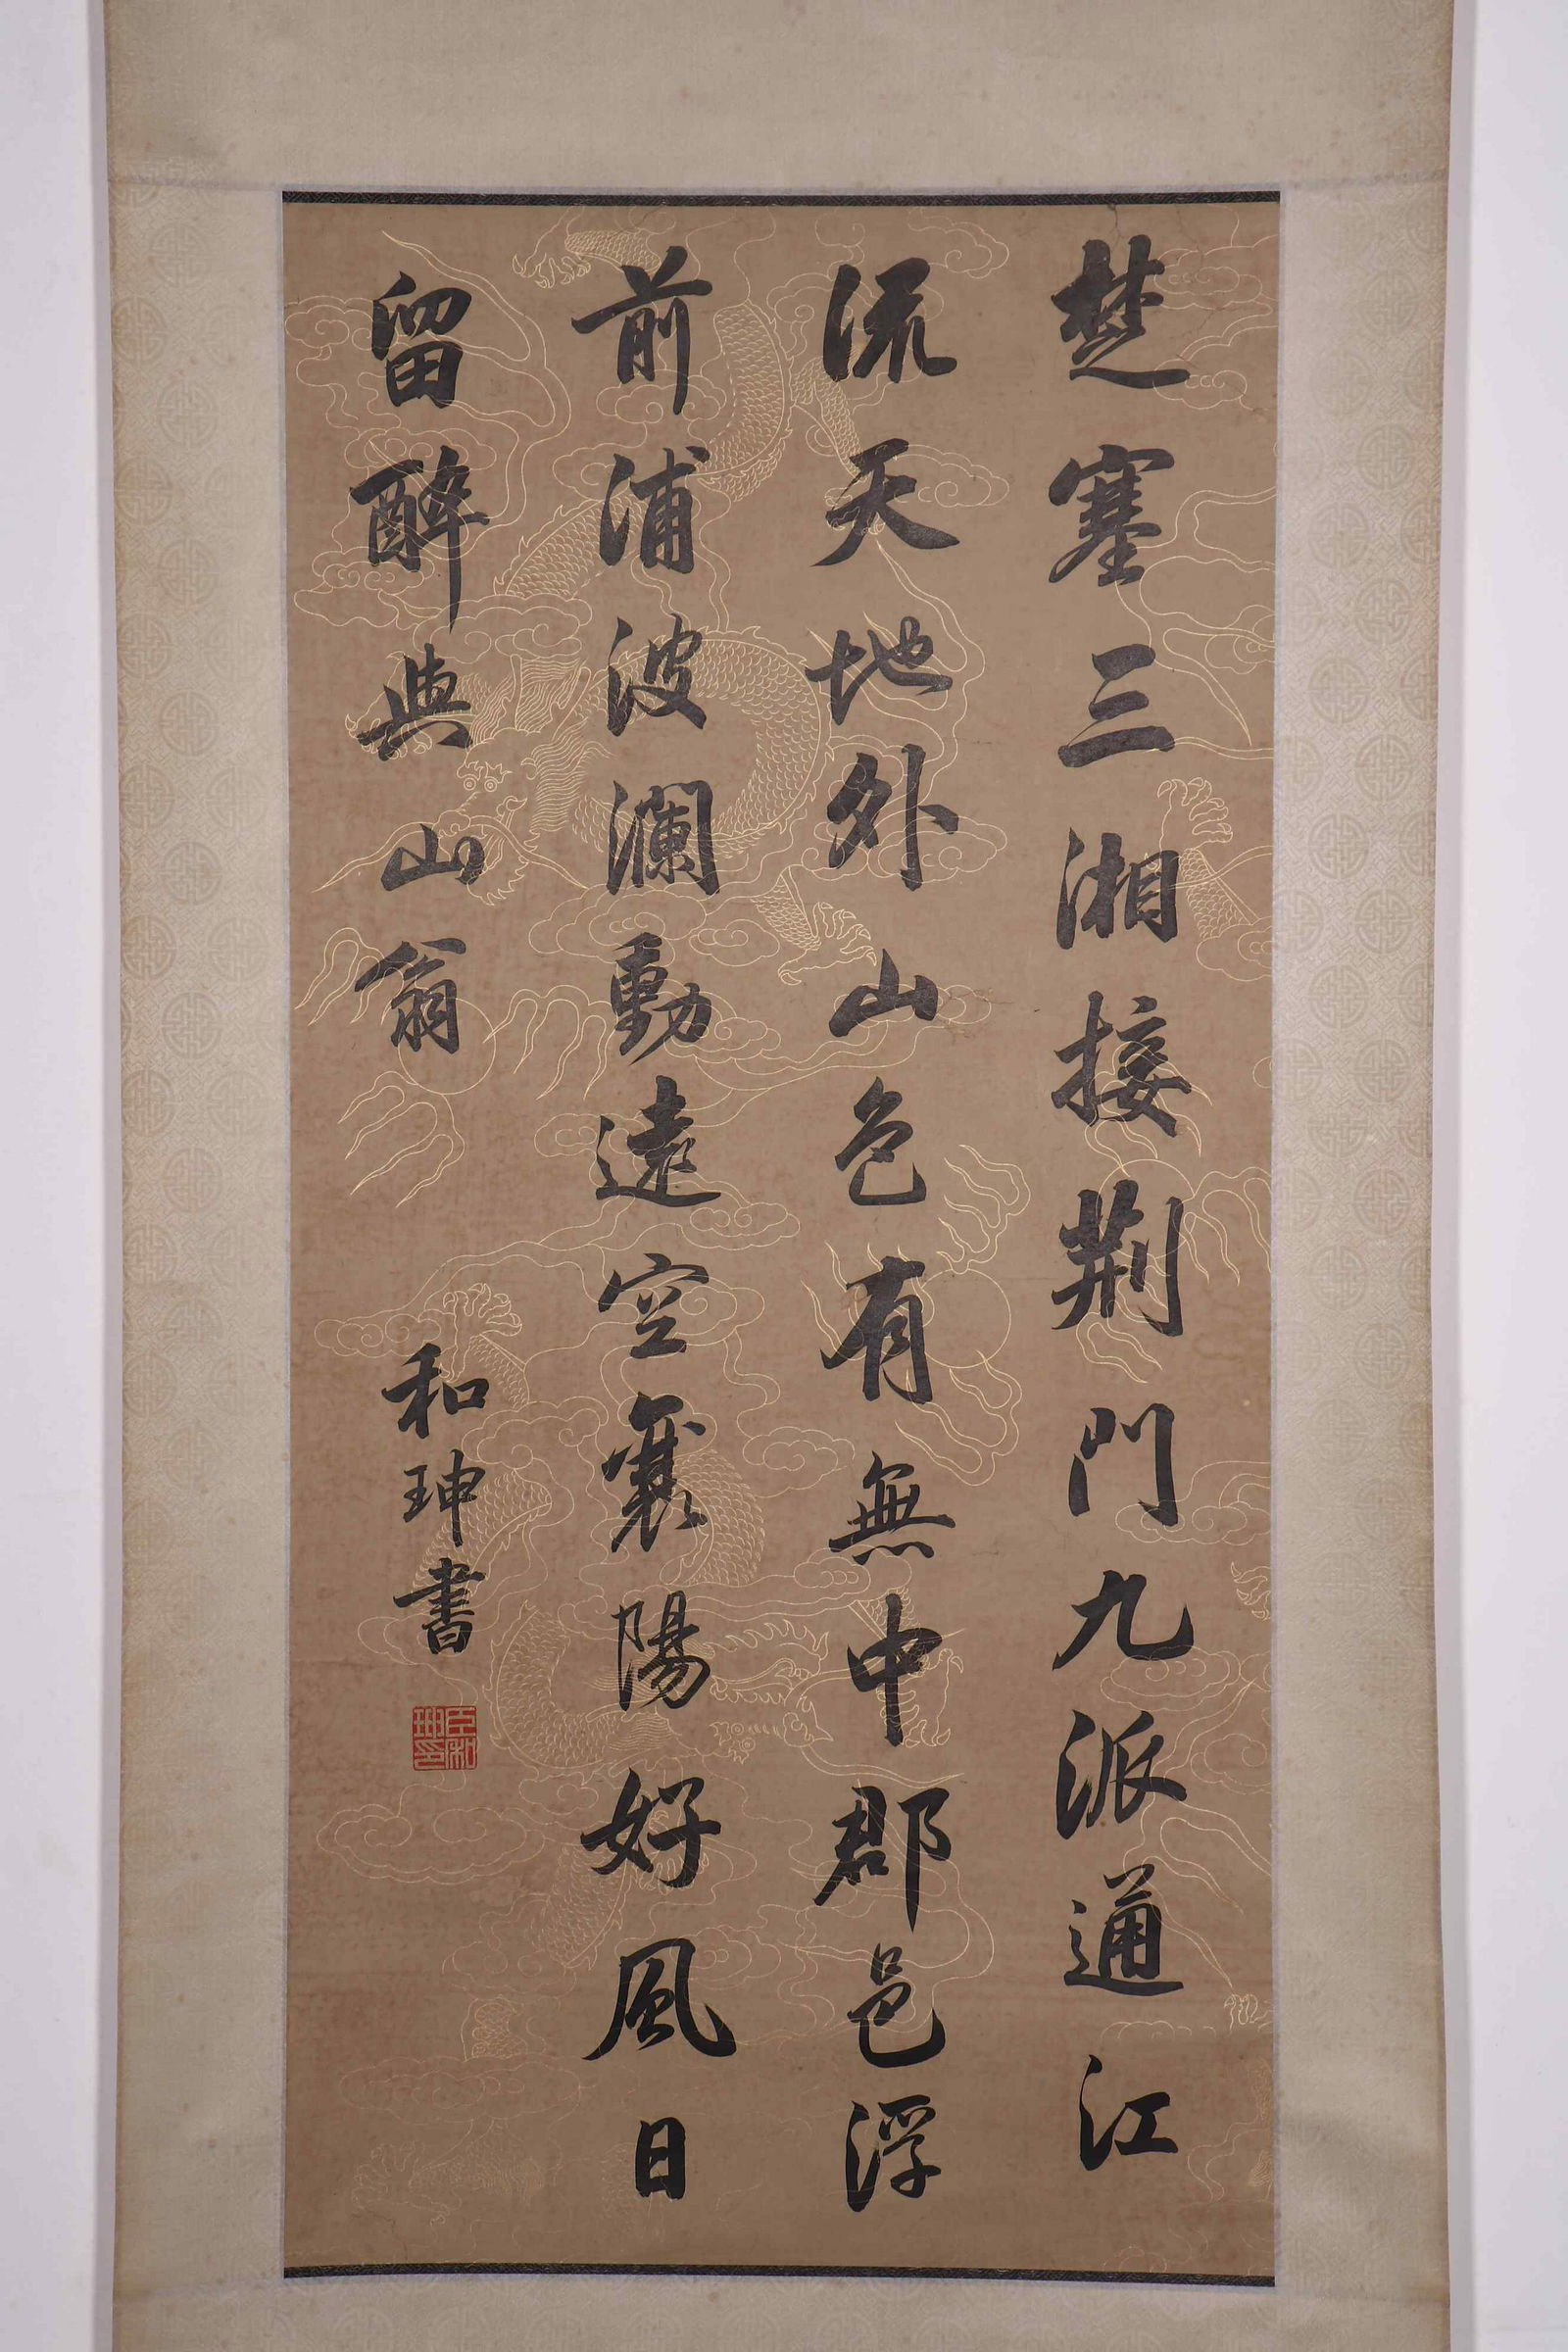 楚塞三湘接荆門九派通江
流天地外山色有無中郡邑浮
前浦波瀾動遠空襄陽好風日
留醉與山翁
和珅書
臣和珅印